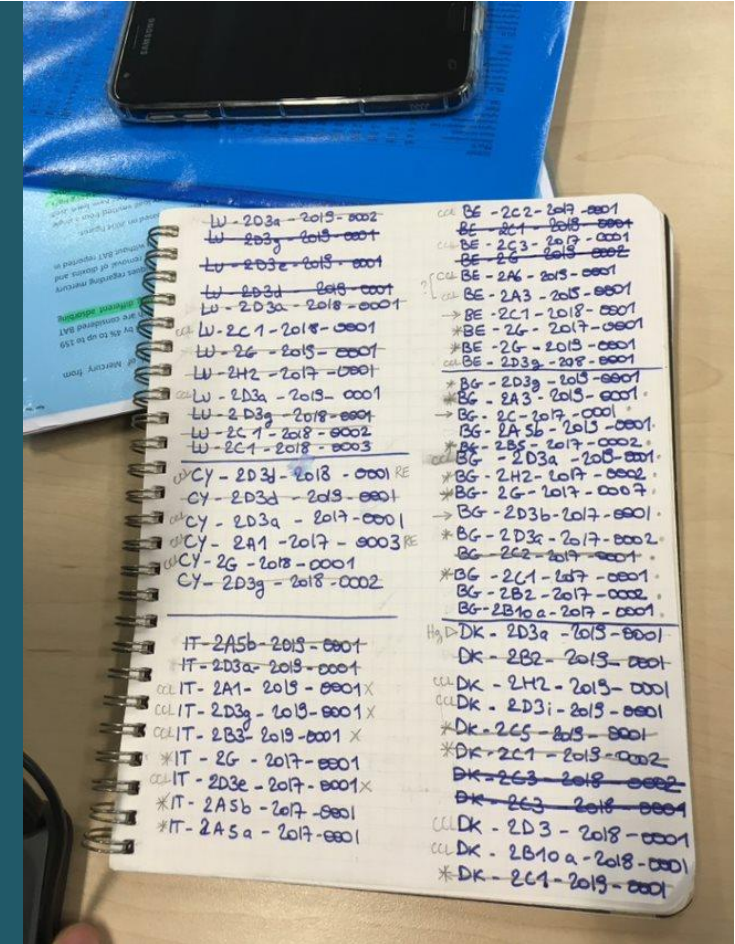 SAMSUNG
ned on 2014 figures
without BAT reported in
removal of dioxins and
ques regarding mercury
different adsorbing
are considered BAT
by 4% to up to 159
of Mercury from
LU - 2D3a - 2019 - 0002
LU - 2D3g - 2019 - 0001
LU - 2D3e - 2019 - 0001
LU - 2D3d - 2018 - 0001
LU - 2D3a - 2018 - 0001
CCL LU - 2C1 - 2018 - 0001
LU - 2G - 2019 - 0001
LU - 2H2 - 2017 - 0001
CCL LU - 2D3a - 2019 - 0001
LU - 2D3g - 2018 - 0001
LU - 2C1 - 2018 - 0002
LU - 2C1 - 2018 - 0003
CCL CY - 2D3d - 2018 - 0001 RE
CY - 2D3d - 2019 - 0001
CCL CY - 2D3a - 2017 - 0001
CCL CY - 2A1 - 2017 - 0003 RE
CCL CY - 2G - 2018 - 0001
CY - 2D3g - 2018 - 0002
IT - 2A5b - 2019 - 0001
IT - 2D3a - 2019 - 0001
CCL IT - 2A1 - 2019 - 0001 X
CCL IT - 2D3g - 2019 - 0001 X
CCL IT - 2B3 - 2019 - 0001 X
* IT - 2G - 2017 - 0001
CCL IT - 2D3e - 2017 - 0001 X
* IT - 2A5b - 2017 - 0001
* IT - 2A5a - 2017 - 0001
CCL BE - 2C2 - 2017 - 0001
BE - 2C1 - 2018 - 0001
CCL BE - 2C3 - 2017 - 0001
BE - 2G - 2019 - 0002
? CCL BE - 2A6 - 2019 - 0001
CCL BE - 2A3 - 2015 - 0001
→ BE - 2C1 - 2018 - 0001
* BE - 2G - 2017 - 0001
* BE - 2G - 2019 - 0001
CCL BE - 2D3g - 208 - 0001
* BG - 2D3g - 2019 - 0001
* BG - 2A3 - 2019 - 0001
→ BG - 2C - 2017 - 0001
BG - 2A5b - 2019 - 0001
* BG - 2B5 - 2017 - 0002
CCL BG - 2D3a - 2019 - 0001
* BG - 2H2 - 2017 - 0002
* BG - 2G - 2017 - 0007
→ BG - 2D3b - 2017 - 0001
* BG - 2D3a - 2017 - 0002
BG - 2C2 - 2017 - 0001
* BG - 2C1 - 2017 - 0001
BG - 2B2 - 2017 - 0002
BG - 2B10a - 2017 - 0001
Hg ▷ DK - 2D3a - 2019 - 0001
DK - 2B2 - 2019 - 0001
CCL DK - 2H2 - 2019 - 0001
CCL DK - 2D3i - 2019 - 0001
* DK - 2C5 - 2019 - 0001
* DK - 2C1 - 2019 - 0002
DK - 2G3 - 2018 - 0002
DK - 2C3 - 2018 - 0001
CCL DK - 2D3 - 2018 - 0001
CCL DK - 2B10a - 2018 - 0001
* DK - 2C1 - 2019 - 0001